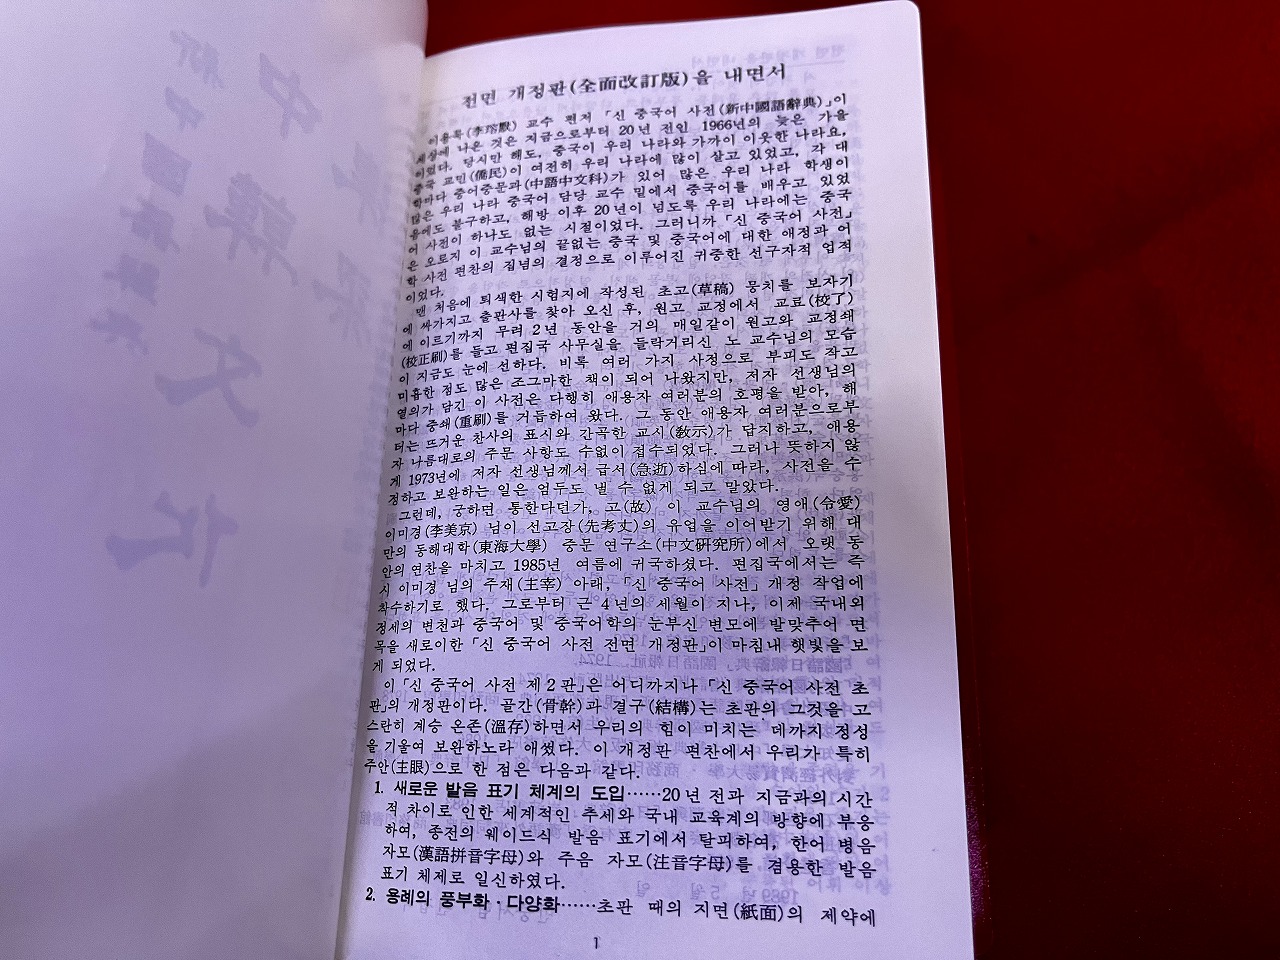 전면 개정판(全面改訂版)을 내면서
이용묵(李瑢默) 교수 편저 「신 중국어 사전(新中國語辭典)」이
세상에 나온 것은 지금으로부터 20년 전인 1966년의 늦은 가을
이었다. 당시만 해도, 중국이 우리 나라와 가까이 이웃한 나라요,
중국 교민(僑民)이 여전히 우리 나라에 많이 살고 있었고, 각 대
학마다 중어중문과(中語中文科)가 있어 많은 우리 나라 학생이
많은 우리 나라 중국어 담당 교수 밑에서 중국어를 배우고 있었
음에도 불구하고, 해방 이후 20년이 넘도록 우리 나라에는 중국
어 사전이 하나도 없는 시절이었다. 그러니까 「신 중국어 사전」
은 오로지 이 교수님의 끝없는 중국 및 중국어에 대한 애정과 어
학 사전 편찬의 집념의 결정으로 이루어진 귀중한 선구자적 업적
이었다.
맨 처음에 퇴색한 시험지에 작성된 초고(草稿) 뭉치를 보자기
에 싸가지고 출판사를 찾아 오신 후, 원고 교정에서 교료(校了)
에 이르기까지 무려 2년 동안을 거의 매일같이 원고와 교정쇄
(校正刷)를 들고 편집국 사무실을 들락거리신 노 교수님의 모습
이 지금도 눈에 선하다. 비록 여러 가지 사정으로 부피도 작고
미흡한 점도 많은 조그마한 책이 되어 나왔지만, 저자 선생님의
열의가 담긴 이 사전은 다행히 애용자 여러분의 호평을 받아, 해
마다 중쇄(重刷)를 거듭하여 왔다. 그 동안 애용자 여러분으로부
터는 뜨거운 찬사의 표시와 간곡한 교시(敎示)가 답지하고, 애용
자 나름대로의 주문 사항도 수없이 접수되었다. 그러나 뜻하지 않
게 1973년에 저자 선생님께서 급서(急逝)하심에 따라, 사전을 수
정하고 보완하는 일은 엄두도 낼 수 없게 되고 말았다.
그런데, 궁하면 통한다던가, 고(故) 이 교수님의 영애(令愛)
이미경(李美京) 님이 선고장(先考丈)의 유업을 이어받기 위해 대
만의 동해대학(東海大學) 중문 연구소(中文硏究所)에서 오랫 동
안의 연찬을 마치고 1985년 여름에 귀국하셨다. 편집국에서는 즉
시 이미경 님의 주재(主宰) 아래, 「신 중국어 사전」 개정 작업에
착수하기로 했다. 그로부터 근 4년의 세월이 지나, 이제 국내외
정세의 변천과 중국어 및 중국어학의 눈부신 변모에 발맞추어 면
목을 새로이한 「신 중국어 사전 전면 개정판」이 마침내 햇빛을 보
게 되었다.
이 「신 중국어 사전 제2판」은 어디까지나 「신 중국어 사전 초
판」의 개정판이다. 골간(骨幹)과 결구(結構)는 초판의 그것을 고
스란히 계승 온존(溫存)하면서 우리의 힘이 미치는 데까지 정성
을 기울여 보완하노라 애썼다. 이 개정판 편찬에서 우리가 특히
주안(主眼)으로 한 점은 다음과 같다.
1. 새로운 발음 표기 체계의 도입……20년 전과 지금과의 시간
적 차이로 인한 세계적인 추세와 국내 교육계의 방향에 부응
하여, 종전의 웨이드식 발음 표기에서 탈피하여, 한어 병음
자모(漢語拼音字母)와 주음 자모(注音字母)를 겸용한 발음
표기 체제로 일신하였다.
2. 용례의 풍부화·다양화……초판 때의 지면(紙面)의 제약에
1